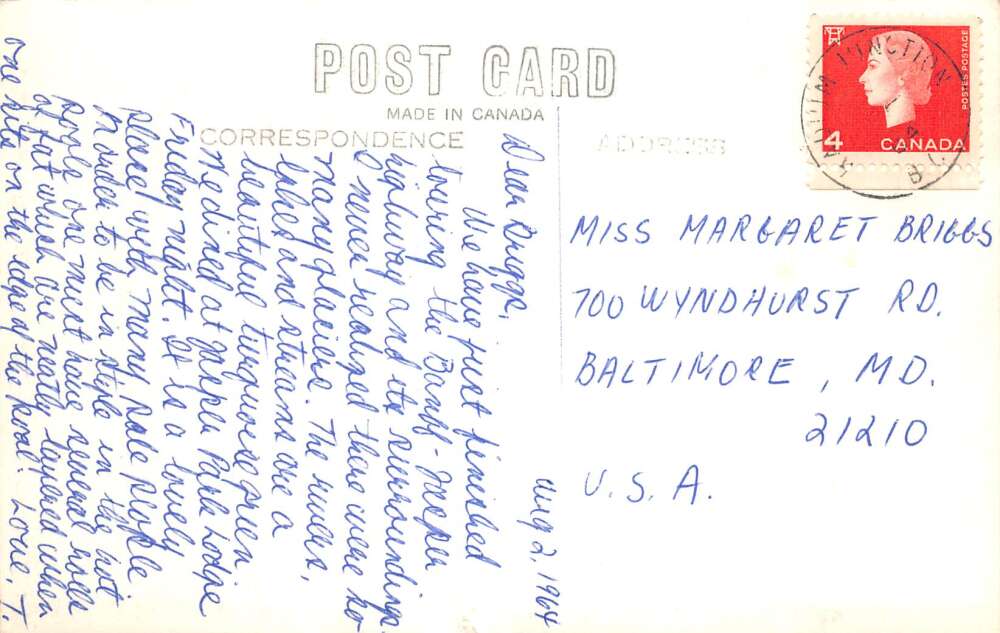 POST CARD
MADE IN CANADA
CORRESPONDENCE
ADDRESS
4
CANADA
POSTES POSTAGE
RADIUM JUNCTION
B.C.
Aug 2, 1964
Dear Briggs,
We have just finished
touring the Banff-Jasper
highway and its surroundings.
I never realized there were so
many glaciers. The rivers,
lakes and streams are a
beautiful turquoise green.
We dined at Jasper Park Lodge
Friday night. It is a lovely
place with many people
In order to be in style in the hot
pools one must have several rolls
of fat which are neatly layered when
one sits on the edge of the pool. Love, T.
MISS MARGARET BRIGGS
700 WYNDHURST RD.
BALTIMORE, MD.
21210
U.S.A.